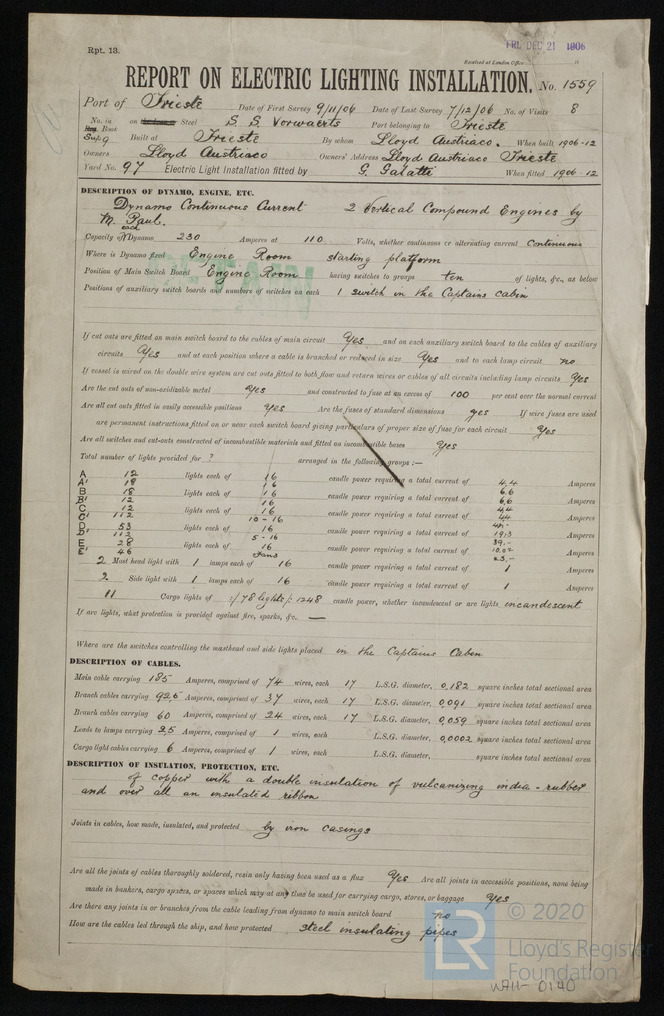 Rpt. 13.
FRI. DEC 21 1906
Received at London Office
REPORT ON ELECTRIC LIGHTING INSTALLATION. No. 1559
Port of Trieste Date of First Survey 9/11/06 Date of Last Survey 7/12/06 No. of Visits 8
No. in on Steel S. S. Vorwaerts Port belonging to Trieste
Reg. Book
Sup 9 Built at Trieste By whom Lloyd Austriaco. When built 1906-12
Owners Lloyd Austriaco Owners' Address Lloyd Austriaco Trieste
Yard No. 97 Electric Light Installation fitted by G. Galatti When fitted 1906-12
DESCRIPTION OF DYNAMO, ENGINE, ETC.
Dynamo Continuous Current 2 Vertical Compound Engines by
M. Paul.
each
Capacity of Dynamo 230 Amperes at 110 Volts, whether continuous or alternating current Continuous
Where is Dynamo fixed Engine Room starting platform
Position of Main Switch Board Engine Room having switches to groups ten of lights, &c., as below
Positions of auxiliary switch boards and numbers of switches on each 1 switch in the Captains cabin
If cut outs are fitted on main switch board to the cables of main circuit Yes and on each auxiliary switch board to the cables of auxiliary
circuits Yes and at each position where a cable is branched or reduced in size Yes and to each lamp circuit no
If vessel is wired on the double wire system are cut outs fitted to both flow and return wires or cables of all circuits including lamp circuits Yes
Are the cut outs of non-oxidizable metal Yes and constructed to fuse at an excess of 100 per cent over the normal current
Are all cut outs fitted in easily accessible positions Yes Are the fuses of standard dimensions yes If wire fuses are used
are permanent instructions fitted on or near each switch board giving particulars of proper size of fuse for each circuit Yes
Are all switches and cut-outs constructed of incombustible materials and fitted on incombustible bases Yes
Total number of lights provided for ? arranged in the following groups :—
A 12 lights each of 16 candle power requiring a total current of 4,4 Amperes
A' 18 16 6.6
B 18 lights each of 16 candle power requiring a total current of 6,6 Amperes
B' 12 16 4,4
C 12 lights each of 16 candle power requiring a total current of 44 Amperes
C' 112 10-16
D 53 lights each of 16 candle power requiring a total current of 19,3 Amperes
D' 112 5-16 39.-
E 28 lights each of 16 candle power requiring a total current of 10.02 Amperes
E' 46 fans 23.-
2 Mast head light with 1 lamps each of 16 candle power requiring a total current of 1 Amperes
2 Side light with 1 lamps each of 16 candle power requiring a total current of 1 Amperes
11 Cargo lights of :/78 lights/: 1248 candle power, whether incandescent or arc lights incandescent
If arc lights, what protection is provided against fire, sparks, &c. —
Where are the switches controlling the masthead and side lights placed in the Captains Caben
DESCRIPTION OF CABLES.
Main cable carrying 185 Amperes, comprised of 74 wires, each 17 L.S.G. diameter, 0,182 square inches total sectional area
Branch cables carrying 92,5 Amperes, comprised of 37 wires, each 17 L.S.G. diameter, 0,091 square inches total sectional area
Branch cables carrying 60 Amperes, comprised of 24 wires, each 17 L.S.G. diameter, 0,059 square inches total sectional area
Leads to lamps carrying 2,5 Amperes, comprised of 1 wires, each L.S.G. diameter, 0,0002 square inches total sectional area
Cargo light cables carrying 6 Amperes, comprised of 1 wires, each L.S.G. diameter, square inches total sectional area
DESCRIPTION OF INSULATION, PROTECTION, ETC.
of copper with a double insulation of vulcanizing india-rubber
and over all an insulated ribbon
Joints in cables, how made, insulated, and protected by iron casings
Are all the joints of cables thoroughly soldered, resin only having been used as a flux Yes Are all joints in accessible positions, none being
made in bunkers, cargo spaces, or spaces which may at any time be used for carrying cargo, stores, or baggage Yes
Are there any joints in or branches from the cable leading from dynamo to main switch board no
How are the cables led through the ship, and how protected steel insulating pipes
© 2020
LR Lloyd's Register
Foundation
WAH- 0140